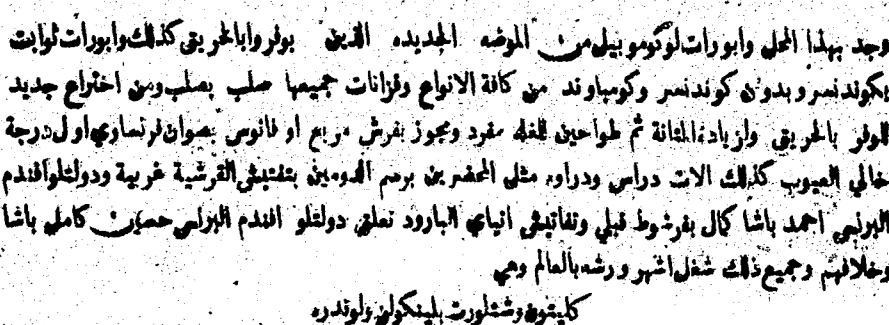 وجد بهذا المحل وابورات لوكوموبيل من الموضه الجديده الذين بوفروا بالحريق كذلك وابورات ثوابت
بكوندنسر وبدون كوندنسر وكومباوند من كافة الانواع وقزانات جميعها صلب بصلب ومن اختراع جديد
للوفر بالحريق ولزيادة المتانة ثم طواحين للغله مفرد ومجوز بفرش مربع او فانوس بصوان فرنساوي اول درجة
خالي العيوب كذلك الات دراس ودراوه مثل المحضرين برسم الدومين بتفتيش القرشية غربية ودولتلو افندم
البرنس احمد باشا كمال بفرشوط قبلي وتفاتيش انياي البارود تعلق دولتلو افندم البرنس حسين كامل باشا
وخلافهم وجميع ذلك شغل اشهر ورشه بالعالم وهي
كليتون وشتلورث بلينكولن ولوندره